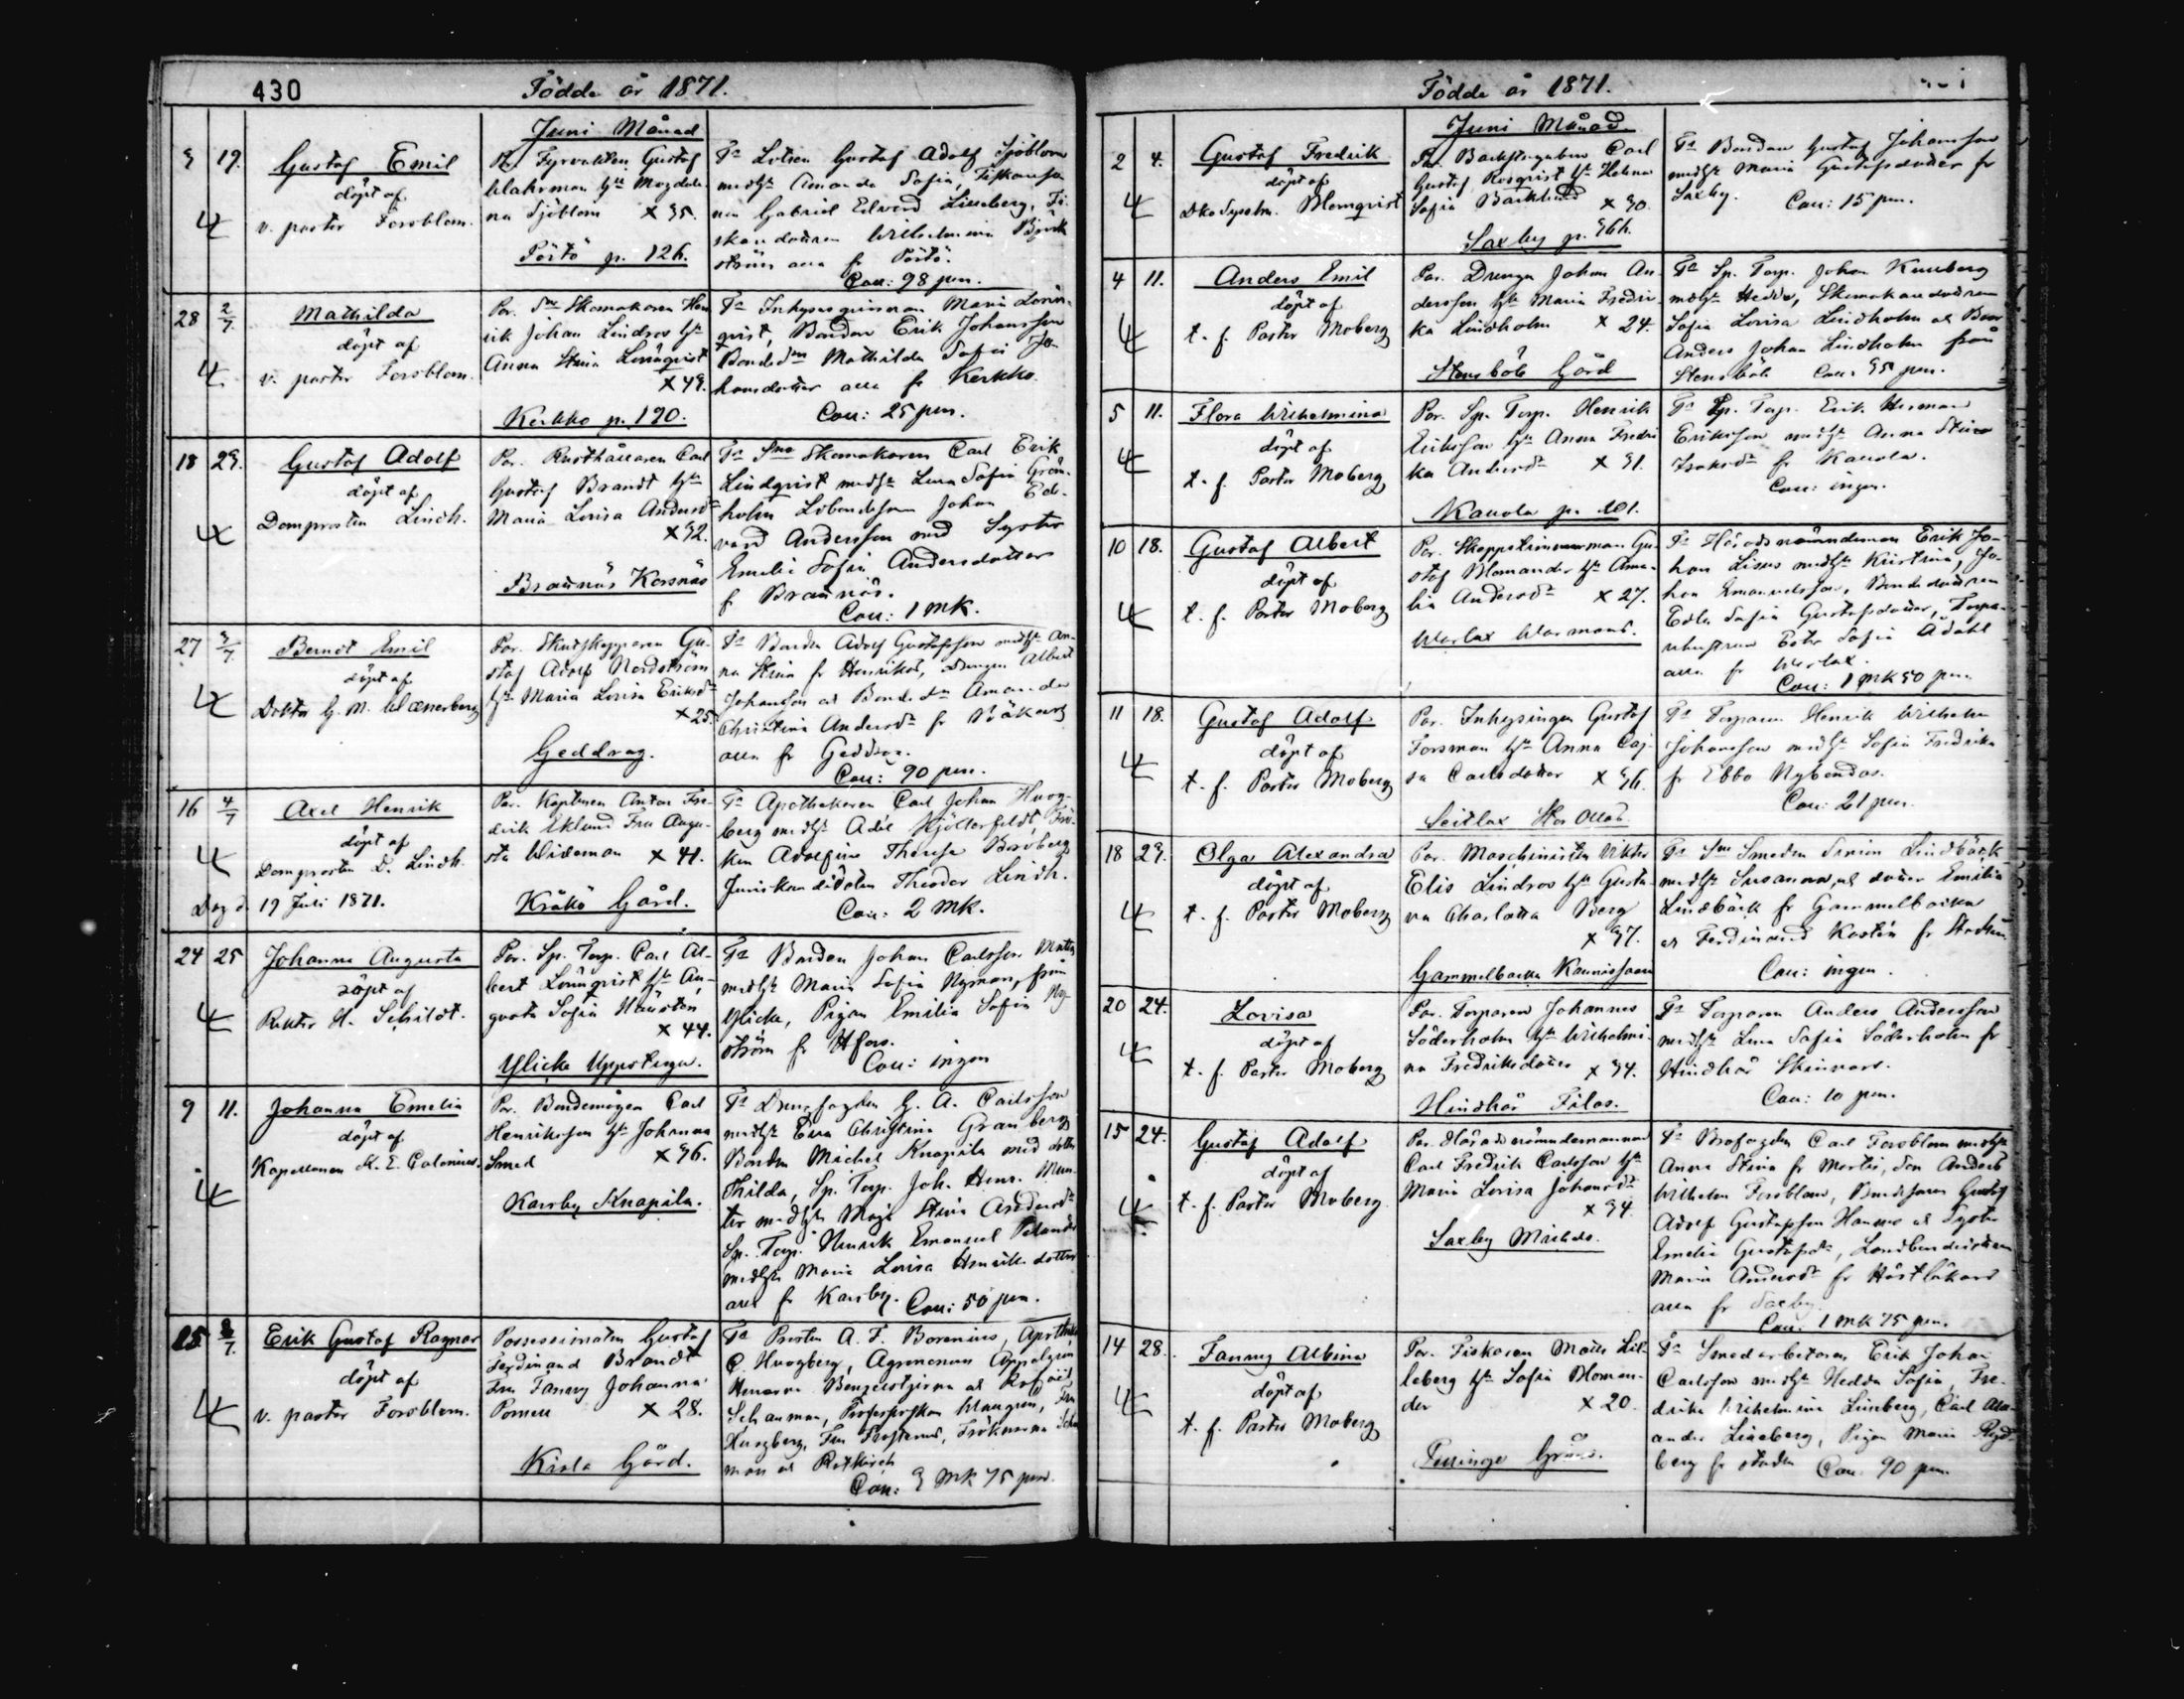 430
Födde år 1871.
Juni Månad
3 19. Gustaf Emil
döpt af
v. pastor Forsblom.
Par. Fyrvaktaren Gustaf
Wahrman hu Magdale-
na Sjöblom x 35.
Pörtö p. 126.
Fa Lotsen Gustaf Adolf Sjöblom
medhu Amanda Sofia, Fiskareso-
nen Gabriel Edvard Lilleberg, Fi-
skaredottren Wilhelmina Björk-
ström alla fr Pörtö.
Coll: 98 pen.
28 2/7 Mathilda
döpt af
v. pastor Forsblom.
Par. Sne Skomakaren Hen-
rik Johan Lindros hu
Anna Stina Lönnqvist
x 49.
Kerkko p. 190.
Fa Inhysesqvinnan Maria Lönn-
qvist, Bonden Erik Johansson
Bondedna Mathilda Sofia Jo-
hansdotter alla fr Kerkko.
Coll: 25 pen.
18 29. Gustaf Adolf
döpt af
Domprosten Lindh.
Par. Rusthållaren Carl
Gustaf Brandt hu
Maria Lovisa Andersdr
x 32.
Brannäs Korsnäs
Fa Sne Skomakaren Carl Erik
Lindqvist medhu Lena Sofia Grön-
holm Johan Ed-
vard Andersson med Syster
Emelie Sofia Andersdotter
f Brannäs.
Coll: 1 mk.
27 3/7 Berndt Emil
döpt af
Doktor G. M. Wænerberg
Par. Skutskepparen Gu-
staf Adolf Nordström
hu Maria Lovisa Eriksdr
x 25.
Geddrag.
Fa Bonden Adolf Gustafsson medhu An-
na Stina fr Henriks, Drengen Albert
Johansson o Bondedr Amanda
Christina Andersdr fr
alla fr Geddrag.
Coll: 90 pen.
16 4/7 Axel Henrik
döpt af
Domprosten D. Lindh.
Dog d. 19 Juli 1871.
Par. Kaptenen Anton Fre-
drik Eklund Fru Augu-
sta Wideman x 41.
Kråkö Gård.
Fa Apothekaren Carl Johan Huog-
berg medhu Adèl Hjöllerfeldt, Frö-
ken Adolfina Theresa Boroberg
Juriskandidaten Theodor Lindh.
Coll: 2 mk.
24 25 Johanna Augusta
döpt af
Rektor H. Schildt.
Par. Sp. Torp. Carl Al-
bert Lönnqvist hu Au-
gusta Sofia
x 44.
Ylicke Uppstuga.
Fa Bonden Johan Carlsson
medhu Maria Sofia Nyman, från
Ylicke, Pigan Emilia Sofia Ny-
ström fr Hfors.
Coll: ingen
9 11. Johanna Emelia
döpt af
Kapellanen K. E. Colonius.
Par. Bondemågen Carl
Henriksson hu Johanna
Smed x 36.
Karsby Knapila.
Fa G. A. Carlsson
medhu Eva Christina Granberg
Bonden Michel Knapila med dotter
Thilda, Sp. Torp. Joh. Henr. Mun-
ter medhu Maja Stina Andersdr
Sp. Torp. Henrik Emanuel
medhu Maria Lovisa Henriksdotter
alla fr Karsby. Coll: 50 pen.
15 /7 Erik Gustaf Ragnar
döpt af
v. pastor Forsblom.
Possessionaten Gustaf
Ferdinand Brandt
Fru Fanny Johanna
x 28.
Kiala Gård.
Fa Prosten A. F. Borenius, Apothek.
C. Huogberg, Agronomen Appelgren
Herrarne o
Schauman, Professorskan, Fru
Huogberg, Fru Frosterus, Fröknarna Schau-
man o Rotkirch
Coll: 3 mk 75 pen.
Födde år 1871.
Juni Månad
2 4. Gustaf Fredrik
döpt af
Blomqvist
Par. Backstugubon Carl
Gustaf Rosqvist hu Helena
Sofia Backlund x 30.
Saxby p. 366.
Fa Bonden Gustaf Johansson
medhu Maria Gustafsdotter fr
Saxby. Coll: 15 pen.
4 11. Anders Emil
döpt af
t. f. Pastor Moberg
Par. Drengen Johan An-
dersson hu Maria Fredri-
ka Lindholm x 24.
Stensböle Gård
Fa Sp. Torp. Johan Kullberg
medhu Hedda, Skomakaredottren
Sofia Lovisa Lindholm o
Anders Johan Lindholm från
Stensböle Coll: 35 pen.
5 11. Flora Wilhelmina
döpt af
t. f. Pastor Moberg
Par. Sp. Torp. Henrik
Eriksson hu Anna Fredri-
ka Andersdr x 31.
Kallola p. 101.
Fa Sp. Torp. Erik Herman
Eriksson medhu Anna Stina
Isaksdr fr Kallola.
Coll: ingen.
10 18. Gustaf Albert
döpt af
t. f. Pastor Moberg
Par. Skeppstimmerman Gu-
staf Blomander hu Ama-
lia Andersdr x 27.
Werlax Warmans.
Fa Häradsnämndeman Erik Jo-
han Lisus medhu Kristina, Jo-
han Emanuelsson, Bondedottren
Edla Sofia Gustafsdotter, Torpa-
rehustrun Edla Sofia Ådahl
alla fr Werlax.
Coll: 1 mk 50 pen.
11 18. Gustaf Adolf
döpt af
t. f. Pastor Moberg
Par. Inhysingen Gustaf
Forsman hu Anna Caj-
sa Carlsdotter x 36.
Seitlax Storollas.
Fa Torparen Henrik Wilhelm
Johansson medhu Sofia Fredrika
fr Ebbo Nybondas.
Coll: 21 pen.
18 29. Olga Alexandra
döpt af
t. f. Pastor Moberg
Par. Maschinisten Viktor
Elis Lindros hu Gusta-
va Charlotta Berg
x 37.
Gammelbacka
Fa Sne Smeden Simon Lindbäck
medhu Susanna, o dotter Emilia
Lindbäck fr Gammelbacka
o Ferdinand Kostén fr Staden.
Coll: ingen.
20 24. Lovisa
döpt af
t. f. Pastor Moberg
Par. Torparen Johannes
Söderholm hu Wilhelmi-
na Fredriksdotter x 34.
Hindhår Filas.
Fa Torparen Anders Andersson
medhu Lena Sofia Söderholm fr
Hindhår Skinnars.
Coll: 10 pen.
15 24. Gustaf Adolf
döpt af
t. f. Pastor Moberg
Par. Häradsnämndemannen
Carl Fredrik Carlsson hu
Maria Lovisa Johansdr
x 34.
Saxby Mickels.
Fa Brofogden Carl Forsblom medhu
Anna Stina fr, Son Anders
Wilhelm Forsblom, Bondesonen Gustaf
Adolf Gustafsson Hannus o Syster
Emelie Gustafsdr, Landbondedottren
Maria Andersdr fr
alla fr Saxby.
Coll: 1 mk 75 pen.
14 28. Fanny Albina
döpt af
t. f. Pastor Moberg
Par. Fiskaren Matts Lil-
leberg hu Sofia Bloman-
der x 20.
Fa Smedarbetaren Erik Johan
Carlsson medhu Hedda Sofia, Fre-
drika Wilhelmina Lilleberg, Carl Alex-
ander Lilleberg, Pigan Maria
berg fr staden Coll: 90 pen.